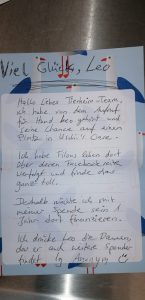 Viel Glück, Leo
Hallo liebes Tierheim-Team,
ich habe von dem Aufruf
für Hund Leo gehört und
seine Chance auf einen
Platz in Uschi's Lane.
Ich habe Filous Leben dort
über deren Facebookseite
verfolgt und finde das
ganz toll.
Deshalb möchte ich mit
meiner Spende sein 1
Jahr dort finanzieren.
Ich drücke Leo die Daumen,
das er auch weitere Spender
findet lg Anonym